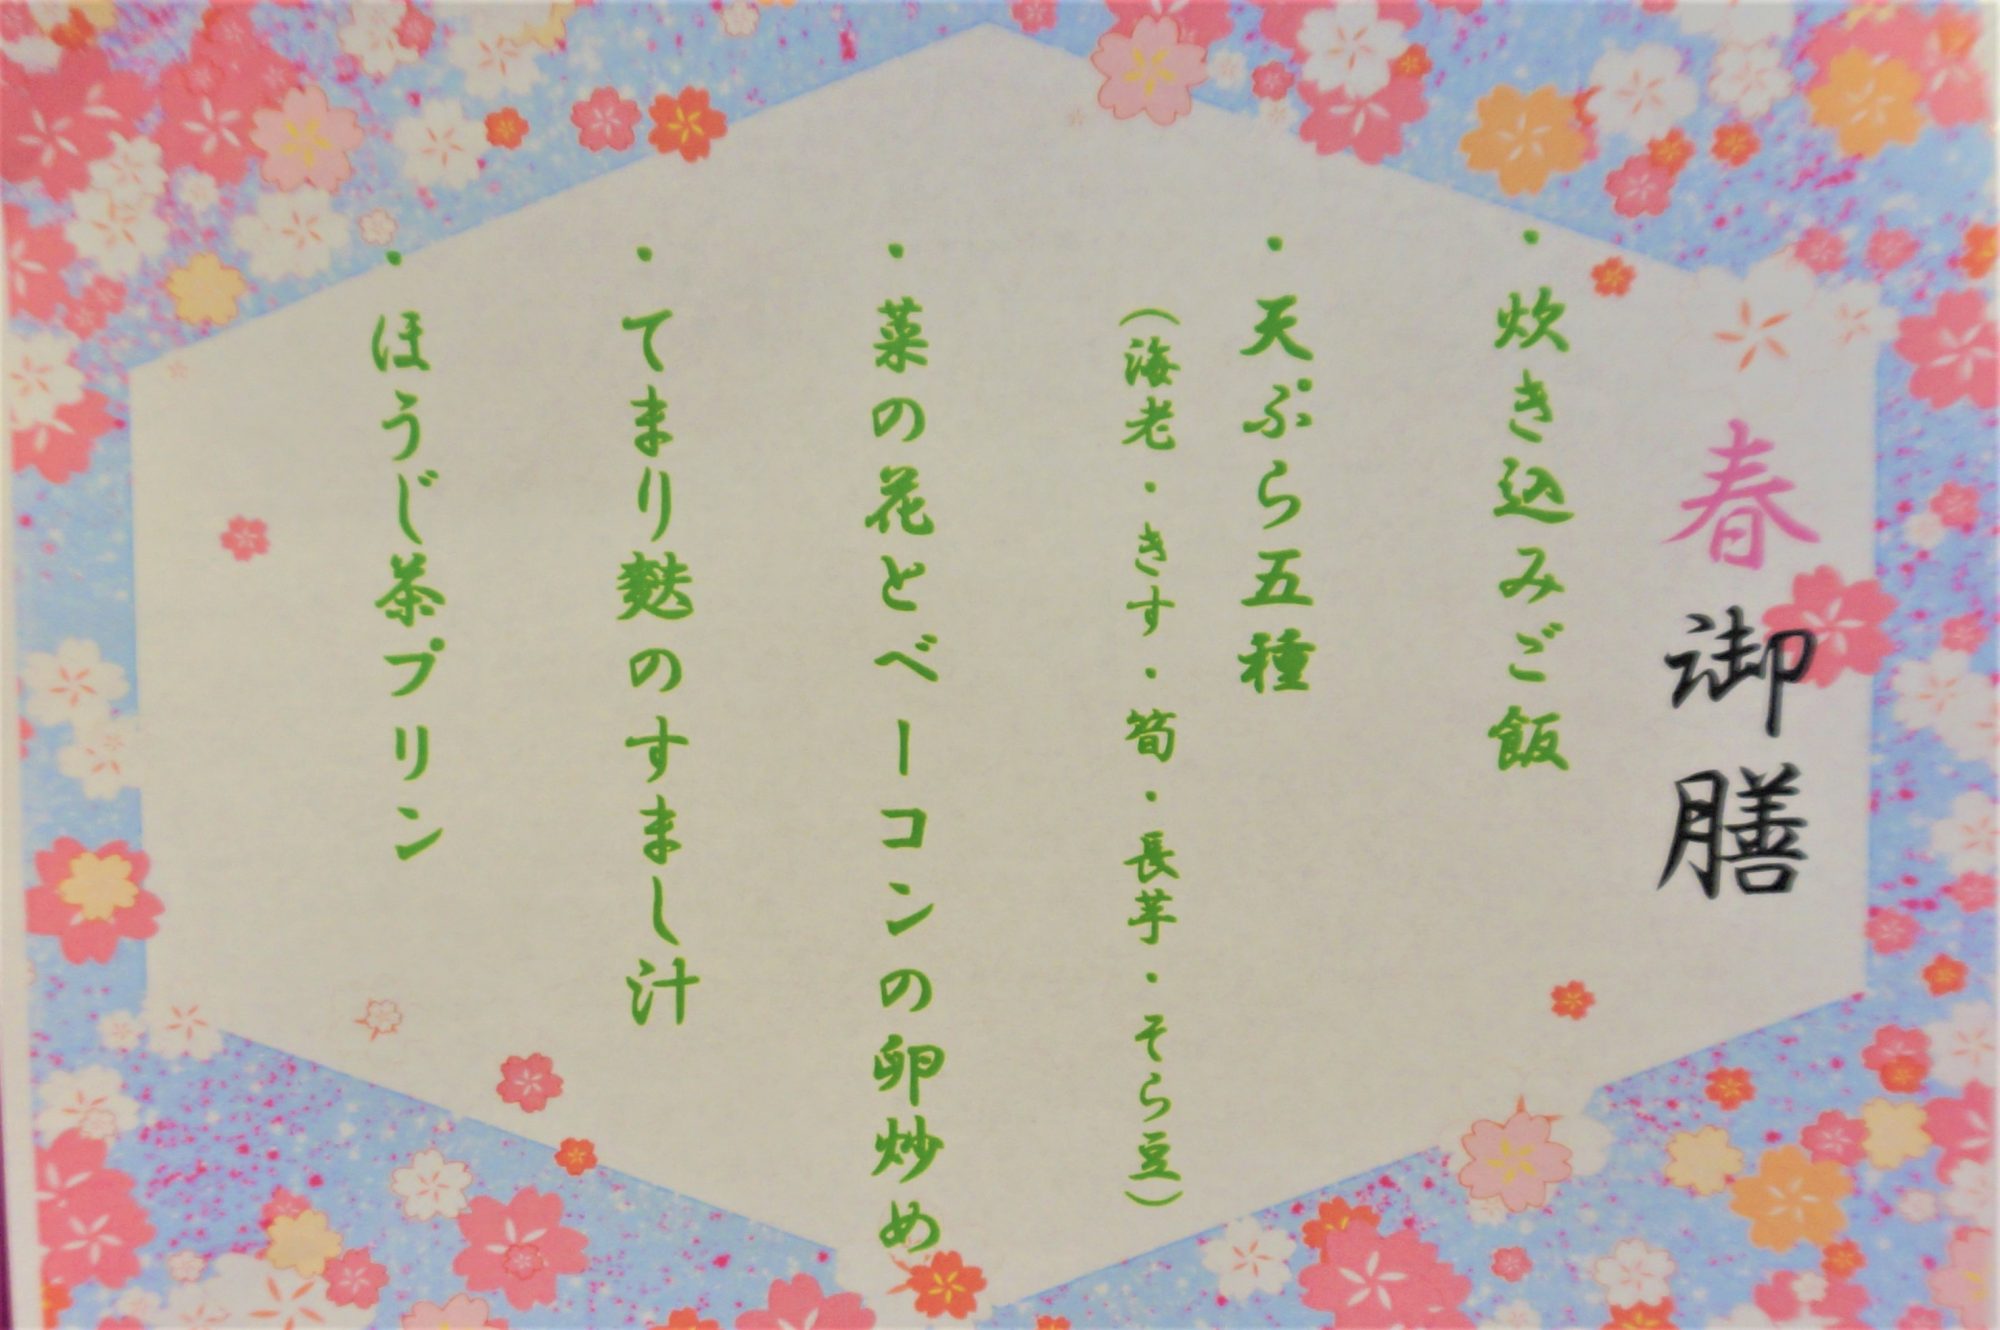 春御膳
・炊き込みご飯
・天ぷら五種
(海老・きす・筍・長芋・そら豆)
・菜の花とベーコンの卵炒め
・てまり麩のすまし汁
・ほうじ茶プリン